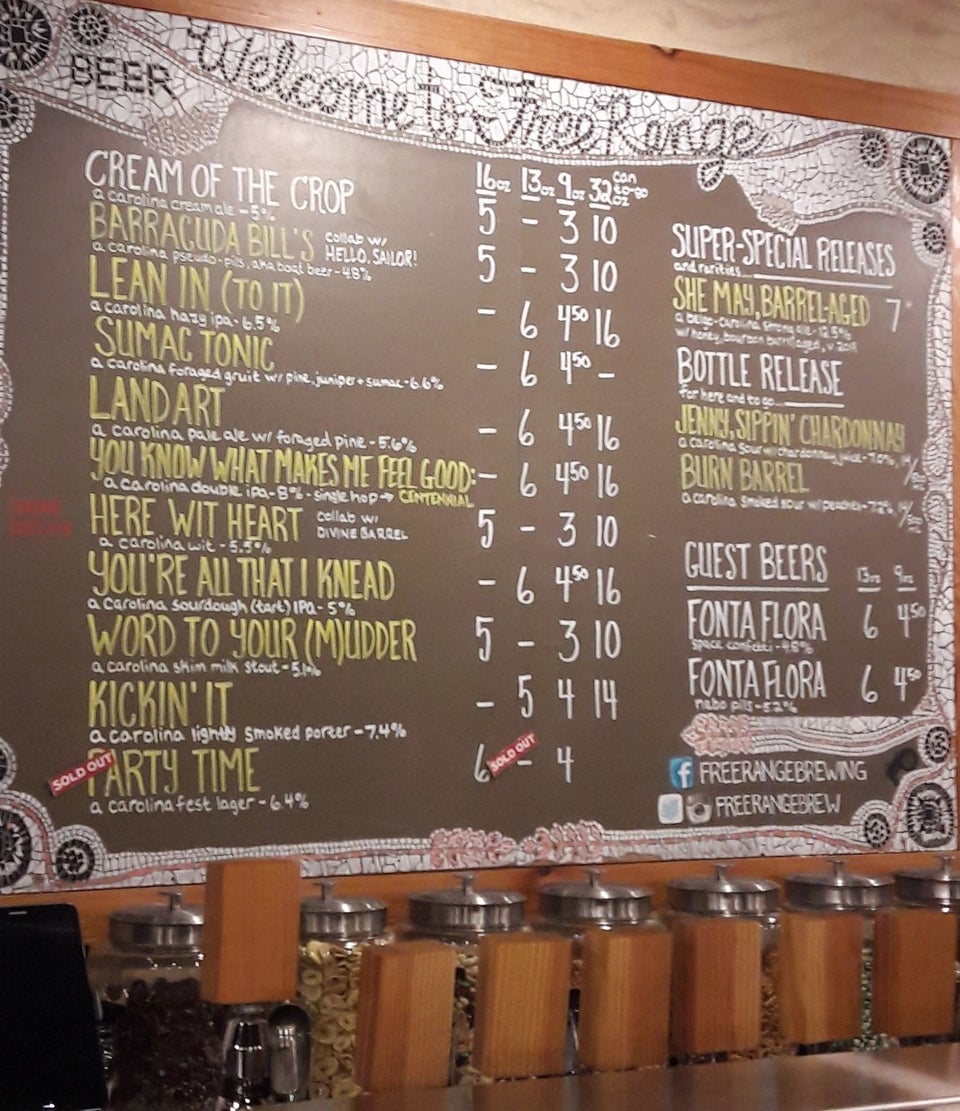 BEER
Welcome to Free Range
16oz 13oz 9oz 32oz can to-go
CREAM OF THE CROP 5 - 3 10
a carolina cream ale - 5%
BARRACUDA BILL'S collab w/ HELLO, SAILOR! 5 - 3 10
a carolina pseudo-pils, aka boat beer - 4.8%
LEAN IN (TO IT) - 6 4.50 16
a carolina hazy ipa - 6.5%
SUMAC TONIC - 6 4.50 -
a carolina foraged gruit w/ pine, juniper + sumac - 6.6%
LAND ART - 6 4.50 16
a carolina pale ale w/ foraged pine - 5.6%
YOU KNOW WHAT MAKES ME FEEL GOOD: - 6 4.50 16
a carolina double ipa - 8% - single hop → CENTENNIAL
HERE, WIT HEART collab w/ DIVINE BARREL 5 - 3 10
a carolina wit - 5.5%
YOU'RE ALL THAT I KNEAD - 6 4.50 16
a carolina sourdough (tart) IPA - 5%
WORD TO YOUR (M)UDDER 5 - 3 10
a carolina skim milk stout - 5.1%
KICKIN' IT - 5 4 14
a carolina lightly smoked porter - 7.4%
SOLD OUT
PARTY TIME 6 - 4
SOLD OUT
a carolina fest lager - 6.4%
SUPER-SPECIAL RELEASES
and rarities...
SHE MAY, BARREL-AGED 7
a belgo-carolina strong ale - 12.5%
w/ honey, bourbon barrel aged
BOTTLE RELEASE
for here and to go...
JENNY, SIPPIN' CHARDONNAY
a carolina sour w/ chardonnay juice
BURN BARREL
a carolina smoked sour w/ peaches - 7.2%
GUEST BEERS 13oz 9oz
FONTA FLORA 6 4.50
space confetti - 4.8%
FONTA FLORA 6 4.50
nebo pils - 5.2%
f FREERANGEBREWING
FREERANGEBREW